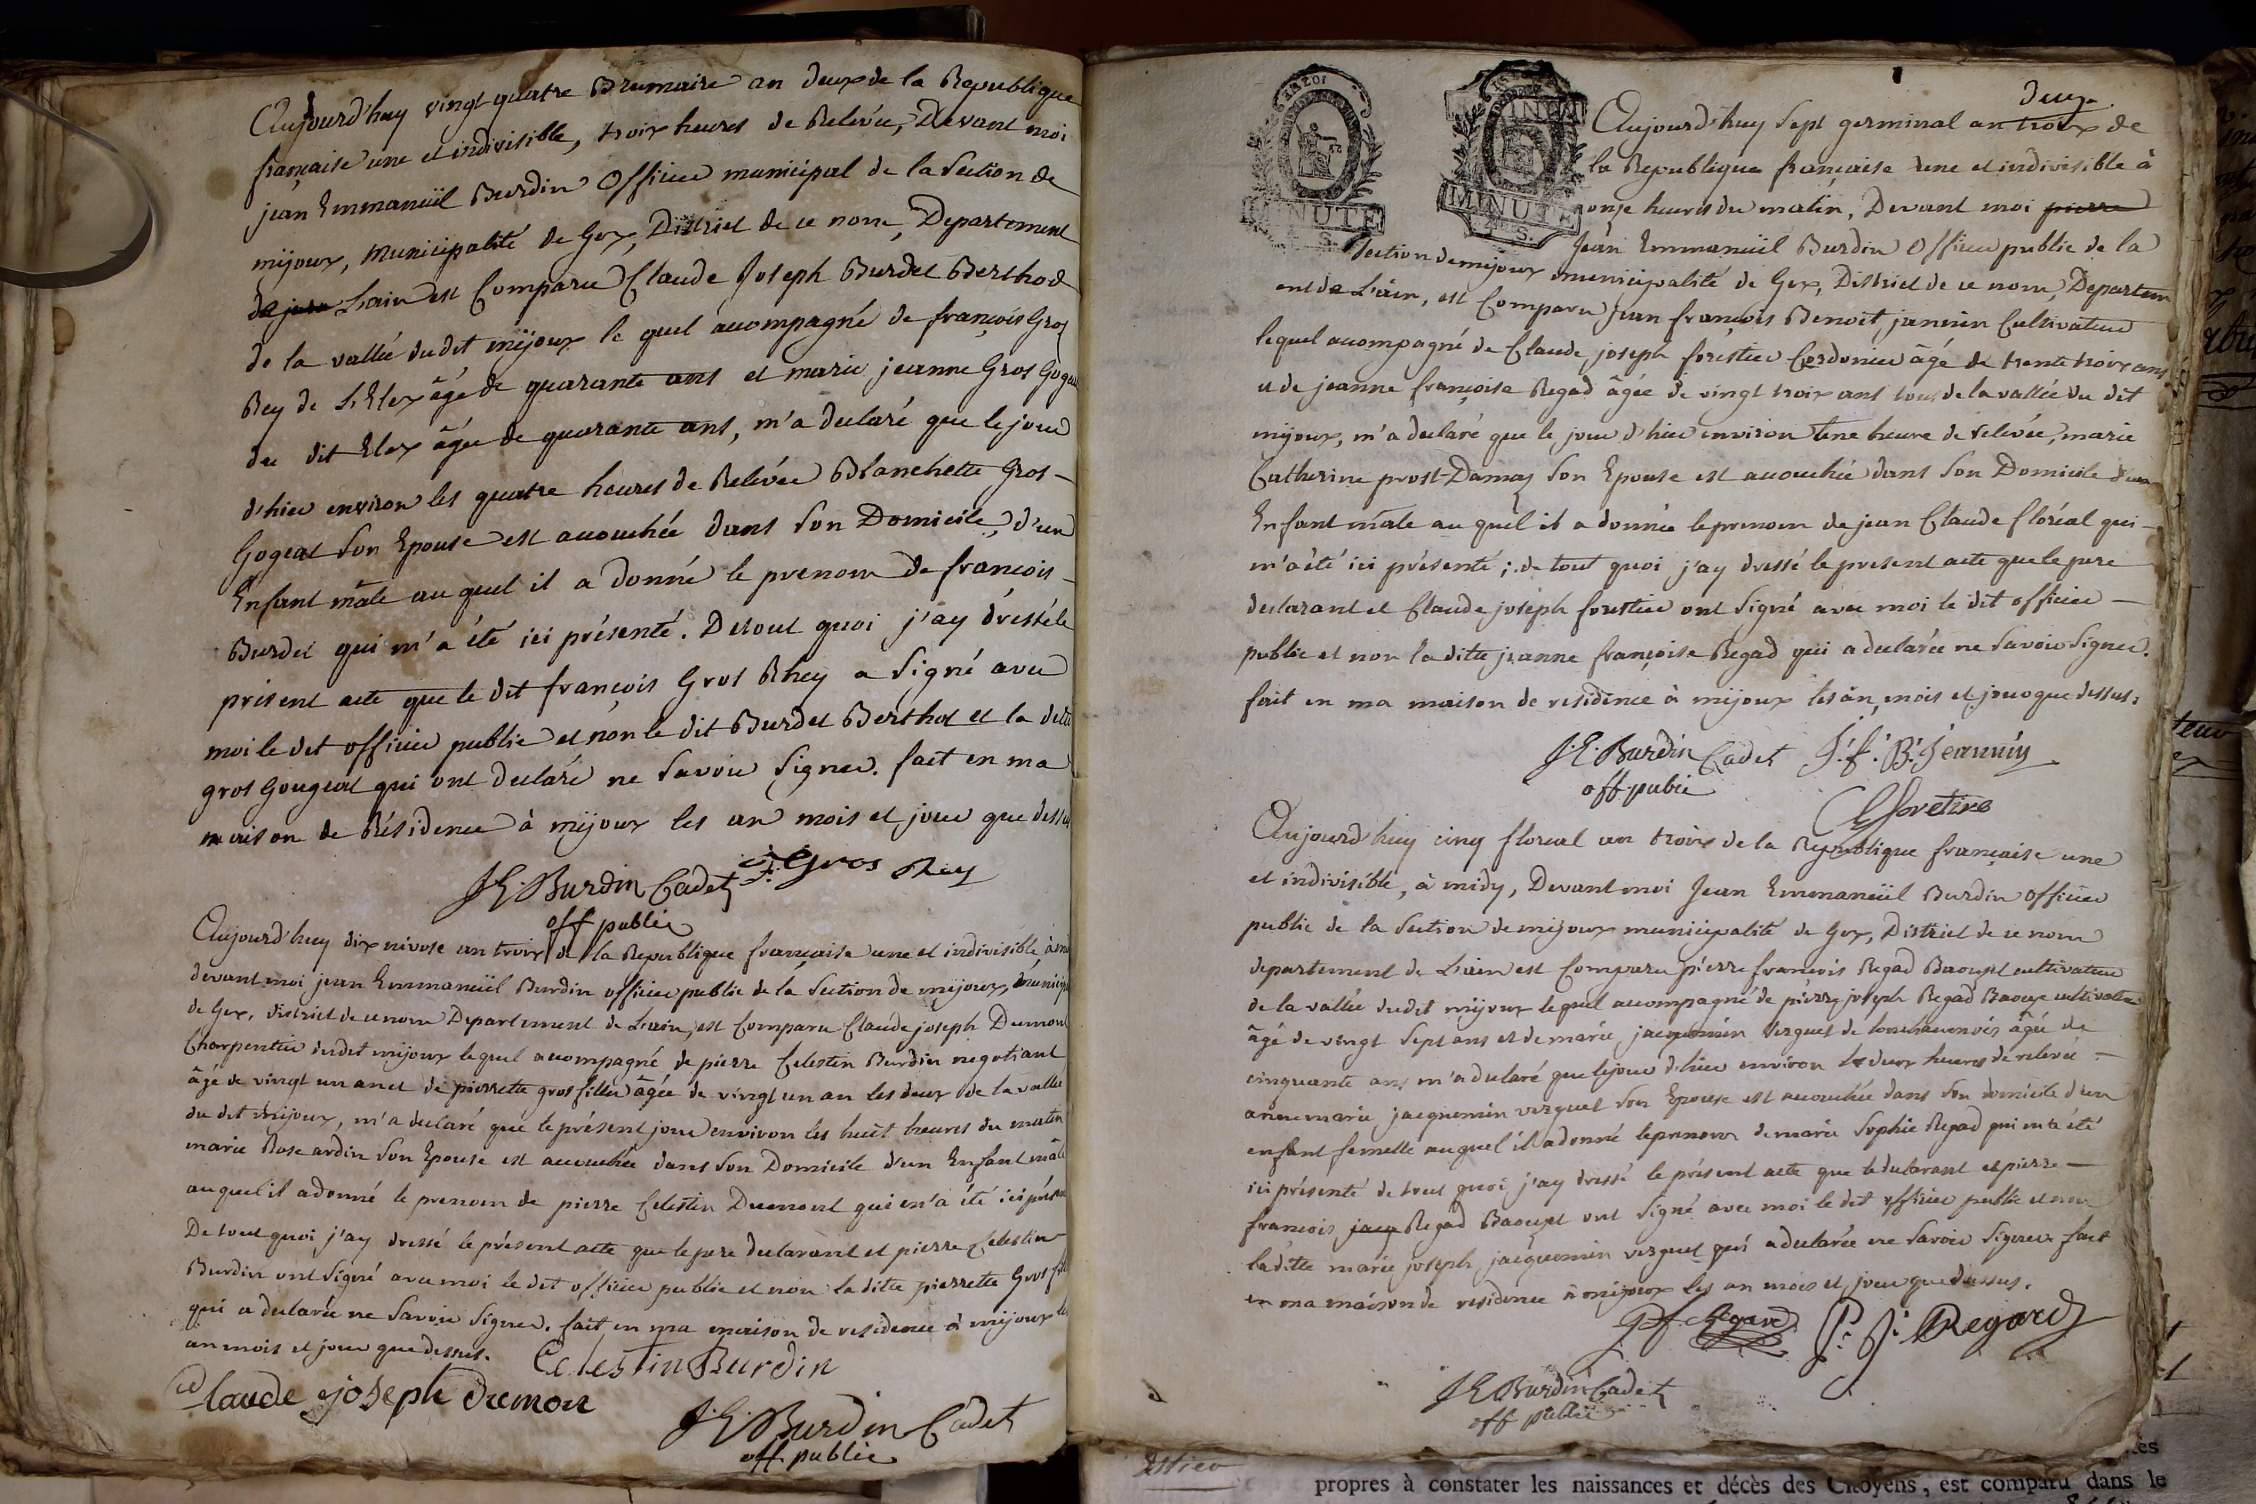 Aujourd'huy vingt quatre Brumaire an deux de la Republique
française une et indivisible, troix heures de Relevée, Devant moi
jean Emmanuël Burdin Officier municipal de la Section de
mijoux, municipalité de Gex, District de ce nom, Departement
de jura Lain est Comparu Claude Joseph Burdet Berthod
de la vallée dudit mijoux le quel accompagné de françois Gros
Rey de L'Elex âgé de quarante ans et marie jeanne Gros Gogeat
du dit Elex âgée de quarante ans, m'a declaré que le jour
d'hier environ les quatre heures de Relevée Blanchette Gros-
Gogeat son Epouse est accouchée dans son Domicile, d'un
Enfant mâle au quel il a donné le prenom de françois-
Burdet qui m'a été ici présenté. De tout quoi j'ay dréssé le
présent acte que le dit françois Gros Rhey a Signé avec
moi le dit officier public et non le dit Burdet Berthod et la ditte
gros Gougeat qui ont declaré ne Savoir Signer. fait en ma
maison de Résidence à mijoux les an mois et jour que dessus
J. E. Burdin Cadet f: Gros Rey
off public
Aujourd'huy dix nivose an troix de la Republique française une et indivisible à
devant moi jean Emmanuël Burdin officier public de la Section de mijoux,
de Gex, district de ce nom Departement de Lain, est Comparu Claude joseph Dumont
Charpentier dudit mijoux lequel accompagné de pierre Celestin Burdin negotiant
âgé de vingt un an et de pierrette gros fillie âgée de vingt un an les deux de la vallée
du dit mijoux, m'a declaré que le présent jour environ les huit heures du matin
marie Rose ardin son Epouse est accouchée dans son Domicile d'un Enfant mâle
auquel il a donné le prenom de pierre Celestin Dumont qui m'a été ici
De tout quoi j'ay dressé le présent acte que le pere declarant et pierre Celestin
Burdin ont Signé avec moi le dit officier public et non la ditte pierrette Gros
qui a declarée ne Savoir Signer. fait en ma maison de residence à mijoux les
an mois et jour que dessus. Celestin Burdin
Claude joseph dumont
J. E. Burdin Cadet
off. public
MINUTE
MINUTE
deux
Aujourd'huy Sept germinal an troix de
la Republique française une et indivisible à
onze heures du matin, Devant moi pierre
Jean Emmanuël Burdin Officier public de la
Section de mijoux municipalité de Gex, District de ce nom, Departem
ent de L'ain, est Comparu Jean françois Benoit jannin Cultivateur
lequel accompagné de Claude joseph forestier Cordonier âgé de trente troix ans
et de jeanne françoise Regad âgée de vingt troix ans tous de la vallée du dit
mijoux, m'a declaré que le jour d'hier environ Une heure de relevée, marie
Catherine prost-Damaz son Epouse est accouchée dans son Domicile d'un
Enfant mâle au quel il a donnée le prenom de jean Claude floréal qui-
m'a été ici présenté; de tout quoi j'ay dressé le present acte que le pere
declarant et Claude joséph forestier ont Signé avec moi le dit officier-
public et non la ditte jeanne françoise Regad qui a declarée ne Savoir Signer.
fait en ma maison de residence à mijoux les ân, mois et jour que dessus.
J. E. Burdin Cadet J. f. B. Jeannin
off public
Aujourd'huy cinq floreal an troix de la Republique française une
et indivisible, à midy, Devant moi Jean Emmanuël Burdin officier
public de la Section de mijoux municipalité de Gex, District de ce nom
departement de Lain est Comparu pierre françois Regad cultivateur
de la vallée dudit mijoux lequel accompagné de pierre joseph Regad cultivateur
âgé de vingt Sept ans et de marie jacquemin verguet de âgée de
cinquante ans m'a declaré que le jour d'hier environ les deux heures de relevée-
anne marie jacquemin verguet son Epouse est accouchée dans son domicile d'un
enfant femelle auquel il a donné le prenom de marie Sophie Regad qui m'a été
ici présenté de tout quoi j'ay dressé le présent acte que le declarant et pierre-
francois Regad ont Signé avec moi le dit officier public et non
la ditte marie joseph jacquemin verguet qui a declarée ne Savoir Signer. fait
en ma maison de residence à mijoux les an mois et jour que dessus.
P. J. Regard
J. E. Burdin Cadet
off public
propres à constater les naissances et décès des Citoyens, est comparu dans le